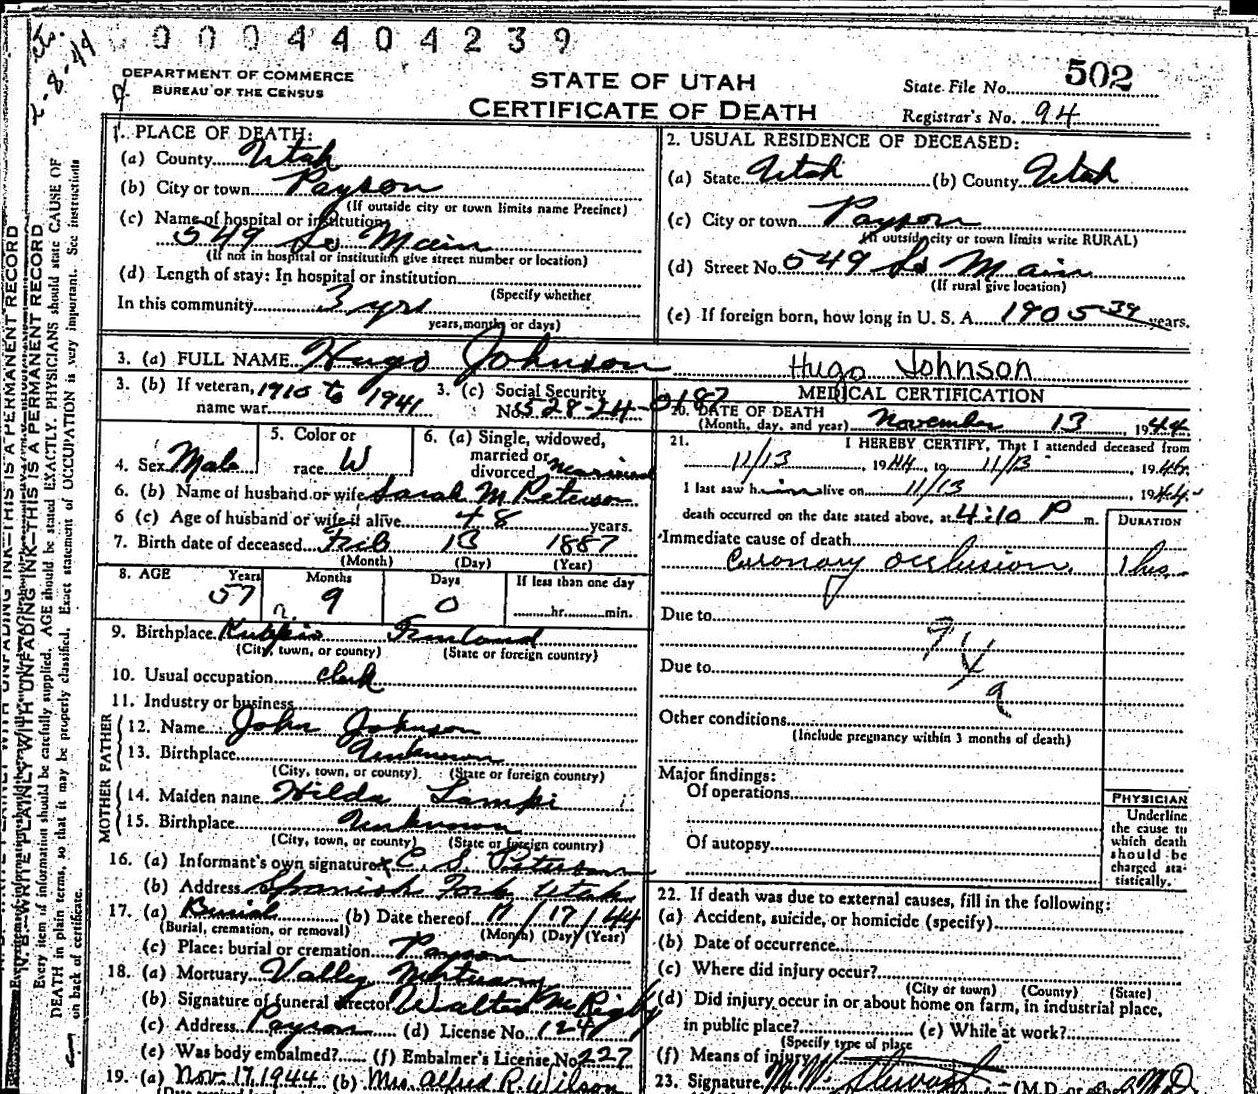 0 0 0 4 4 0 4 2 3 9
2-8-49
DEPARTMENT OF COMMERCE
BUREAU OF THE CENSUS
STATE OF UTAH
CERTIFICATE OF DEATH
State File No. 502
Registrar's No. 94
1. PLACE OF DEATH:
(a) County Utah
(b) City or town Payson
(If outside city or town limits name Precinct)
(c) Name of hospital or institution
549 So Main
(If not in hospital or institution give street number or location)
(d) Length of stay: In hospital or institution
(Specify whether
In this community 3 yrs
years, months or days)
2. USUAL RESIDENCE OF DECEASED:
(a) State Utah (b) County Utah
(c) City or town Payson
(If outside city or town limits write RURAL)
(d) Street No. 549 So Main
(If rural give location)
(e) If foreign born, how long in U. S. A. 1905 39 years.
3. (a) FULL NAME Hugo Johnson Hugo Johnson
3. (b) If veteran, name war 1910 to 1941
3. (c) Social Security No. 528-24-0187
4. Sex Male
5. Color or race W
6. (a) Single, widowed, married or divorced married
6. (b) Name of husband or wife Sarah M Peterson
6 (c) Age of husband or wife if alive 48 years.
7. Birth date of deceased Feb 13 1887
(Month) (Day) (Year)
8. AGE Years Months Days If less than one day
57 9 0 hr. min.
9. Birthplace Finland
(City, town, or county) (State or foreign country)
10. Usual occupation clerk
11. Industry or business
FATHER
12. Name John Johnson
13. Birthplace Unknown
(City, town, or county) (State or foreign country)
MOTHER
14. Maiden name Hilda Lampi
15. Birthplace Unknown
(City, town, or county) (State or foreign country)
16. (a) Informant's own signature x C. S. Peterson
(b) Address Spanish Fork Utah
17. (a) Burial (b) Date thereof 11/17/44
(Burial, cremation, or removal) (Month) (Day) (Year)
(c) Place: burial or cremation Payson
18. (a) Mortuary Valley Mortuary
(b) Signature of funeral director Walter M Rigby
(c) Address Payson (d) License No. 124
(e) Was body embalmed? (f) Embalmer's License No. 227
19. (a) Nov. 17, 1944 (b) Mrs. Alfred R. Wilson
MEDICAL CERTIFICATION
20. DATE OF DEATH
(Month, day, and year) November 13 1944
21. I HEREBY CERTIFY, That I attended deceased from
11/13, 1944, to 11/13, 1944.
I last saw him alive on 11/13 1944
death occurred on the date stated above, at 4:10 P m.
DURATION
Immediate cause of death
Coronary occlusion. 1 hr.
Due to
94
Due to
a
Other conditions
(Include pregnancy within 3 months of death)
Major findings:
Of operations
Of autopsy
PHYSICIAN
Underline
the cause to
which death
should be
charged sta-
tistically.
22. If death was due to external causes, fill in the following:
(a) Accident, suicide, or homicide (specify)
(b) Date of occurrence
(c) Where did injury occur?
(City or town) (County) (State)
(d) Did injury occur in or about home on farm, in industrial place,
in public place? (e) While at work?
(Specify type of place
(f) Means of injury
23. Signature M.W. Stewart (M.D. or other) M.D.
WRITE PLAINLY WITH UNFADING INK—THIS IS A PERMANENT RECORD
Every item of information should be carefully supplied. AGE should be stated EXACTLY. PHYSICIANS should state CAUSE OF
DEATH in plain terms, so that it may be properly classified. Exact statement of OCCUPATION is very important. See instructions
on back of certificate.